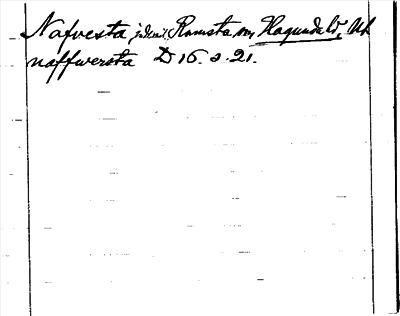 Nafvesta, Ramsta sn, Hagunda hd, Upl
naffwersta D 16. s. 21.